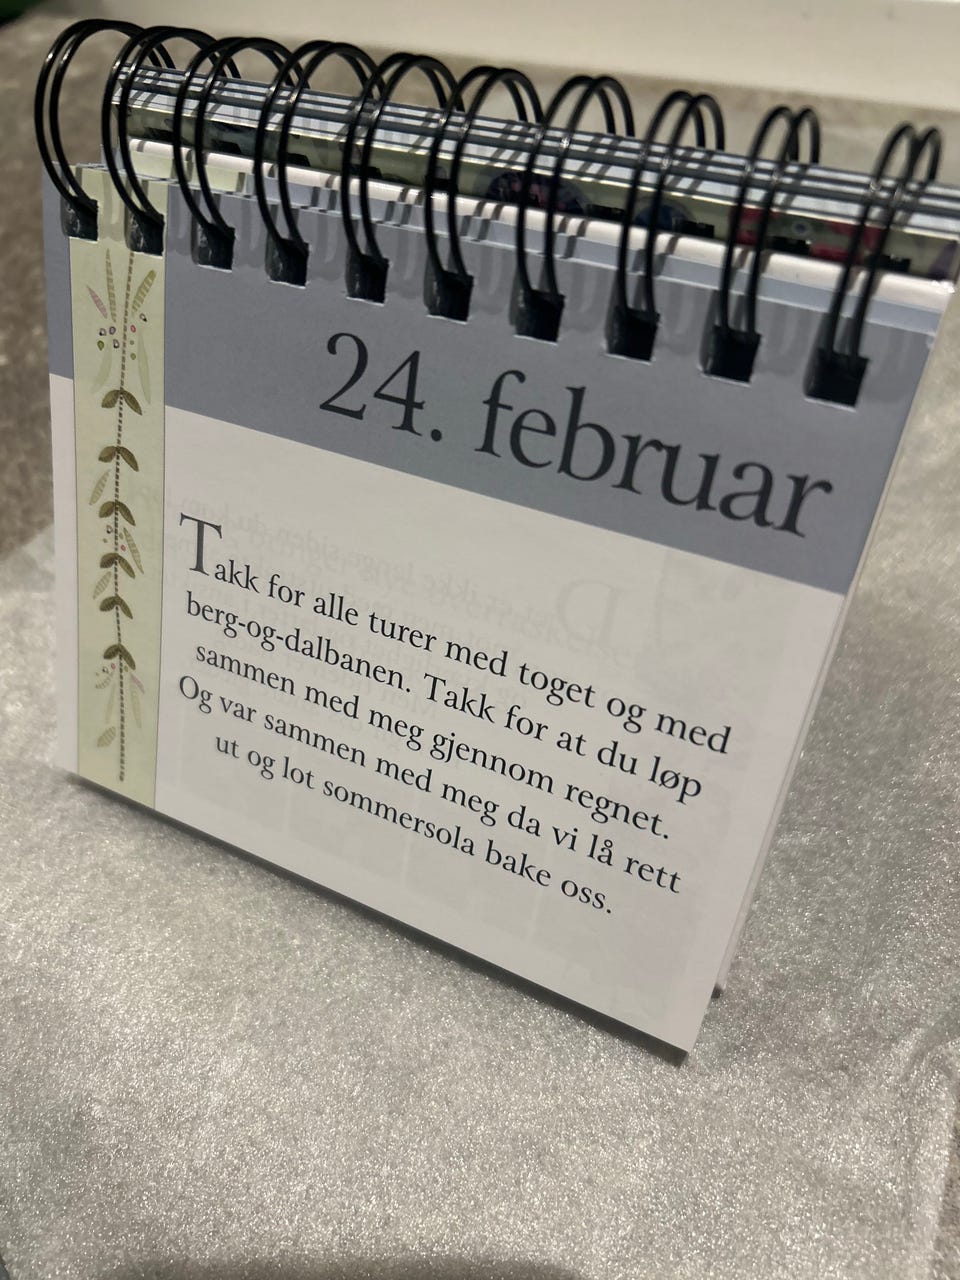 24. februar
Takk for alle turer med toget og med
berg-og-dalbanen. Takk for at du løp
sammen med meg gjennom regnet.
Og var sammen med meg da vi lå rett
ut og lot sommersola bake oss.